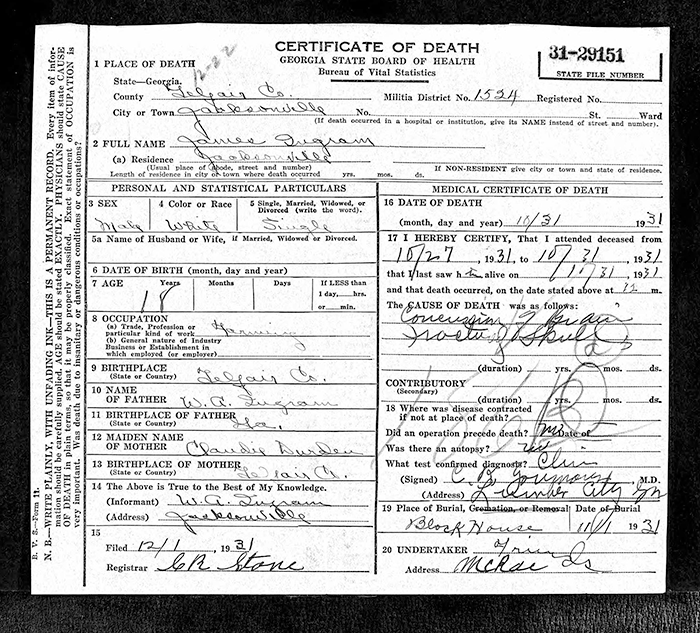 CERTIFICATE OF DEATH
GEORGIA STATE BOARD OF HEALTH
Bureau of Vital Statistics
31-29151
STATE FILE NUMBER
12-22
1 PLACE OF DEATH
State—Georgia.
County Telfair Co. Militia District No. 1524 Registered No.
City or Town Jacksonville No. St. Ward
(If death occurred in a hospital or institution, give its NAME instead of street and number).
2 FULL NAME James Ingram
(a) Residence Jacksonville
(Usual place of abode, street and number) If NON-RESIDENT give city or town and state of residence.
Length of residence in city or town where death occurred yrs. mos. ds.
PERSONAL AND STATISTICAL PARTICULARS
3 SEX
Male
4 Color or Race
White
5 Single, Married, Widowed, or Divorced (write the word).
Single
5a Name of Husband or Wife, if Married, Widowed, or Divorced.
6 DATE OF BIRTH (month, day and year)
7 AGE Years Months Days If LESS than
1 day,....hrs.
or....min.
18
8 OCCUPATION
(a) Trade, Profession or particular kind of work Farming
(b) General nature of Industry Business or Establishment in which employed (or employer)
9 BIRTHPLACE
(State or Country) Telfair Co.
10 NAME OF FATHER W. A. Ingram
11 BIRTHPLACE OF FATHER
(State or Country) Ga.
12 MAIDEN NAME OF MOTHER Claudie Burden
13 BIRTHPLACE OF MOTHER
(State or Country) Telfair Co.
14 The Above is True to the Best of My Knowledge.
(Informant) W. A. Ingram
(Address) Jacksonville
15
Filed 12/1, 1931
Registrar C R Stone
MEDICAL CERTIFICATE OF DEATH
16 DATE OF DEATH
(month, day and year) 10/31 1931
17 I HEREBY CERTIFY, That I attended deceased from
10/27, 1931, to 10/31, 1931
that I last saw h alive on 10/31, 1931
and that death occurred, on the date stated above at 12 m.
The CAUSE OF DEATH was as follows:
Concussion of Brain
Fracture of Skull
(duration) yrs. mos. ds.
CONTRIBUTORY
(Secondary)
(duration) yrs. mos. ds.
18 Where was disease contracted if not at place of death?
Did an operation precede death? no Date of
Was there an autopsy? no
What test confirmed diagnosis? Clin
(Signed) C. B. M.D.
(Address) Lumber City
19 Place of Burial, Cremation, or Removal Date of Burial
Block House 11/1 1931
20 UNDERTAKER Friends
Address McRae
B. V. S.—Form 11.
N. B.—WRITE PLAINLY, WITH UNFADING INK—THIS IS A PERMANENT RECORD. Every item of information should be carefully supplied. AGE should be stated EXACTLY. PHYSICIANS should state CAUSE OF DEATH in plain terms, so that it may be properly classified. Exact statement of OCCUPATION is very important. Was death due to insanitary or dangerous conditions or occupations?